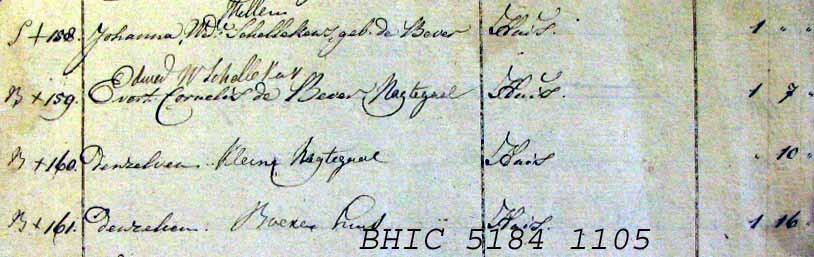 Willem
S + 158. Johanna, Wd. Schellekens, geb. de Bever Huis. 1 " "
Eduard W Schellekens
B + 159. Evert Cornelis de Bever Nagtegaal Huis. 1 7 "
B + 160. Denzelven Kleine Nagtegaal Huis " 10 "
B + 161. Denzelven. Boeren huis Huis. 1 16 "
BHIC 5184 1105